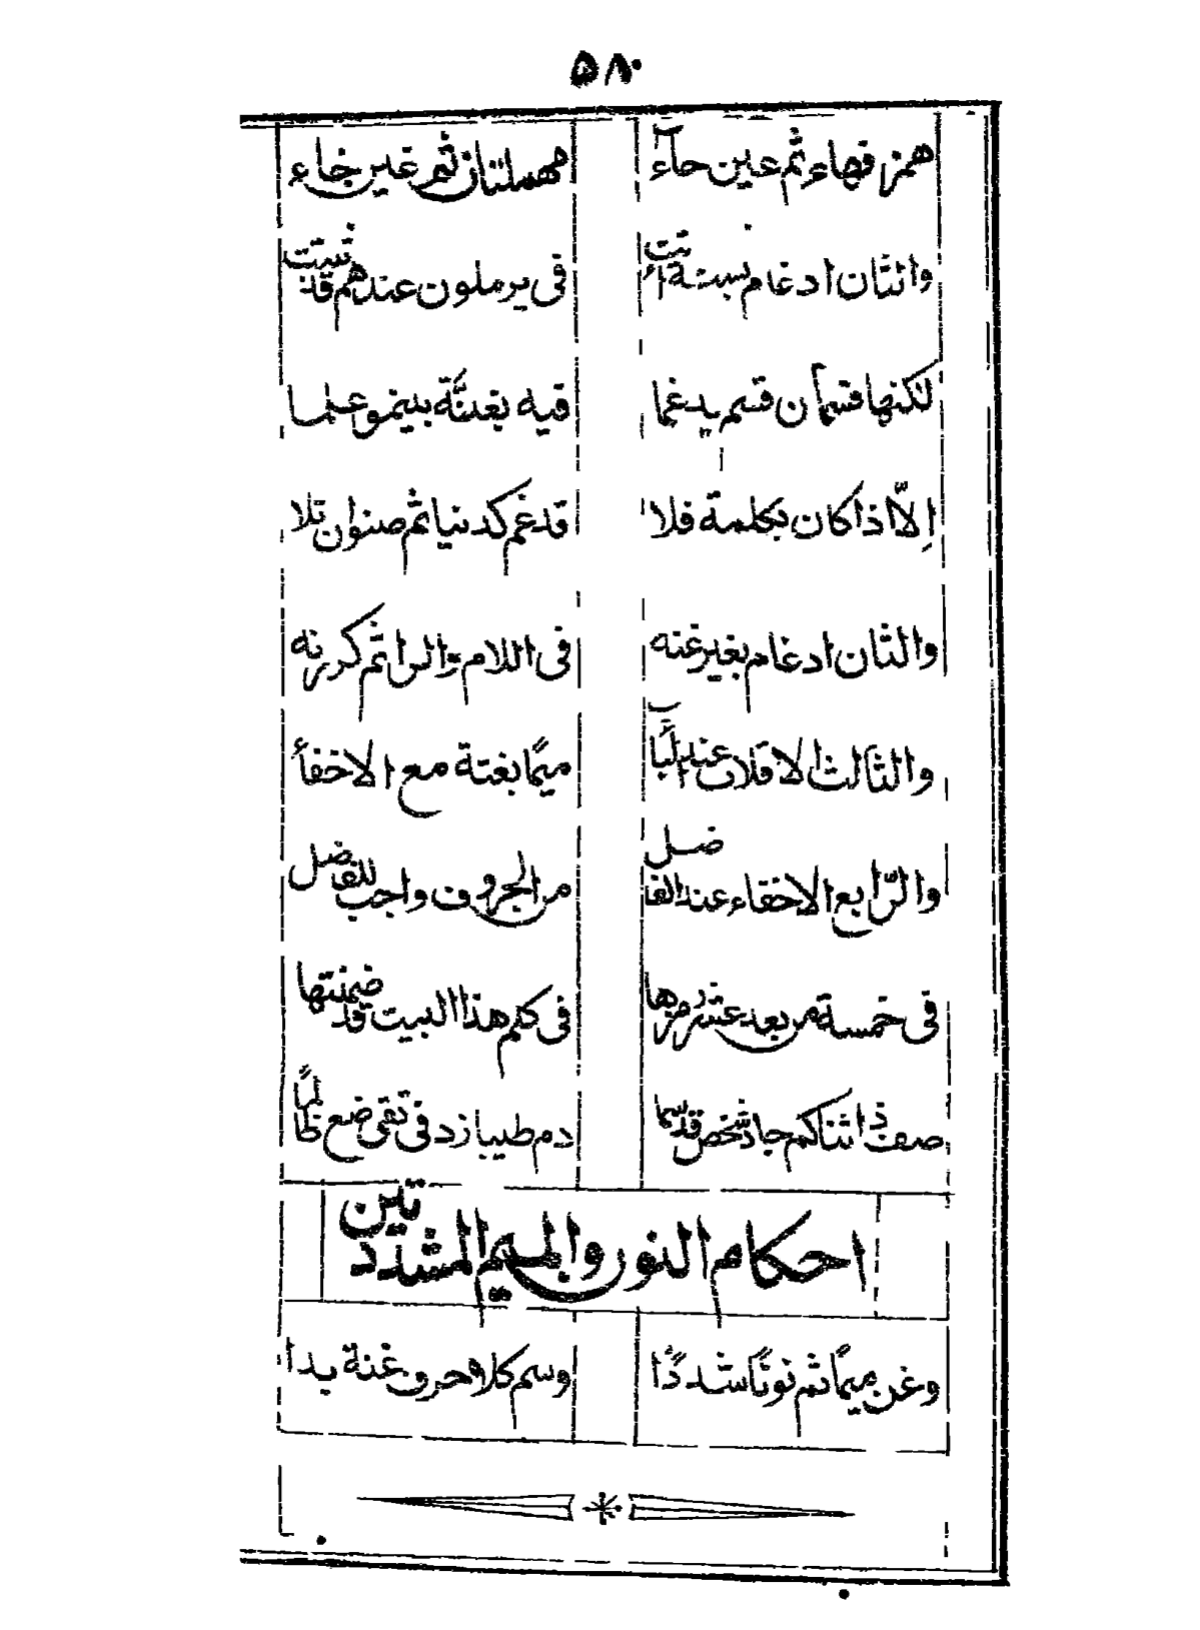 ۵۸۰
همز فهاء ثم عين حآء مهملتان ثم غين خاء
والثان ادغام بستة اتت فى يرملون عندهم قد ثبتت
لكنها قسمان قسم يدغما فيه بغنَّة بينمو علما
اِلاّ ذا كان بكلمة فلا تدغم كدنيا ثم صنوان تلا
والثان ادغام بغير غنه فى اللام والرا ثم كررنه
والثالث الاقلاب عند البا ميمًا بغنة مع الاخفا
والرّابع الاخفاء عند الفاضل من الحروف واجب للفاضل
فى خمسة من بعد عشر رمزها فى كلم هذا البيت قد ضمنتها
صف ذا ثنا كم جاد شخص قد سما دم طيبا زد فى تقى ضع ظالمًا
احكام النون والميم المشددتين
وغن ميمًا ثم نونًا شددًا وسم كلا حرف غنة بدا